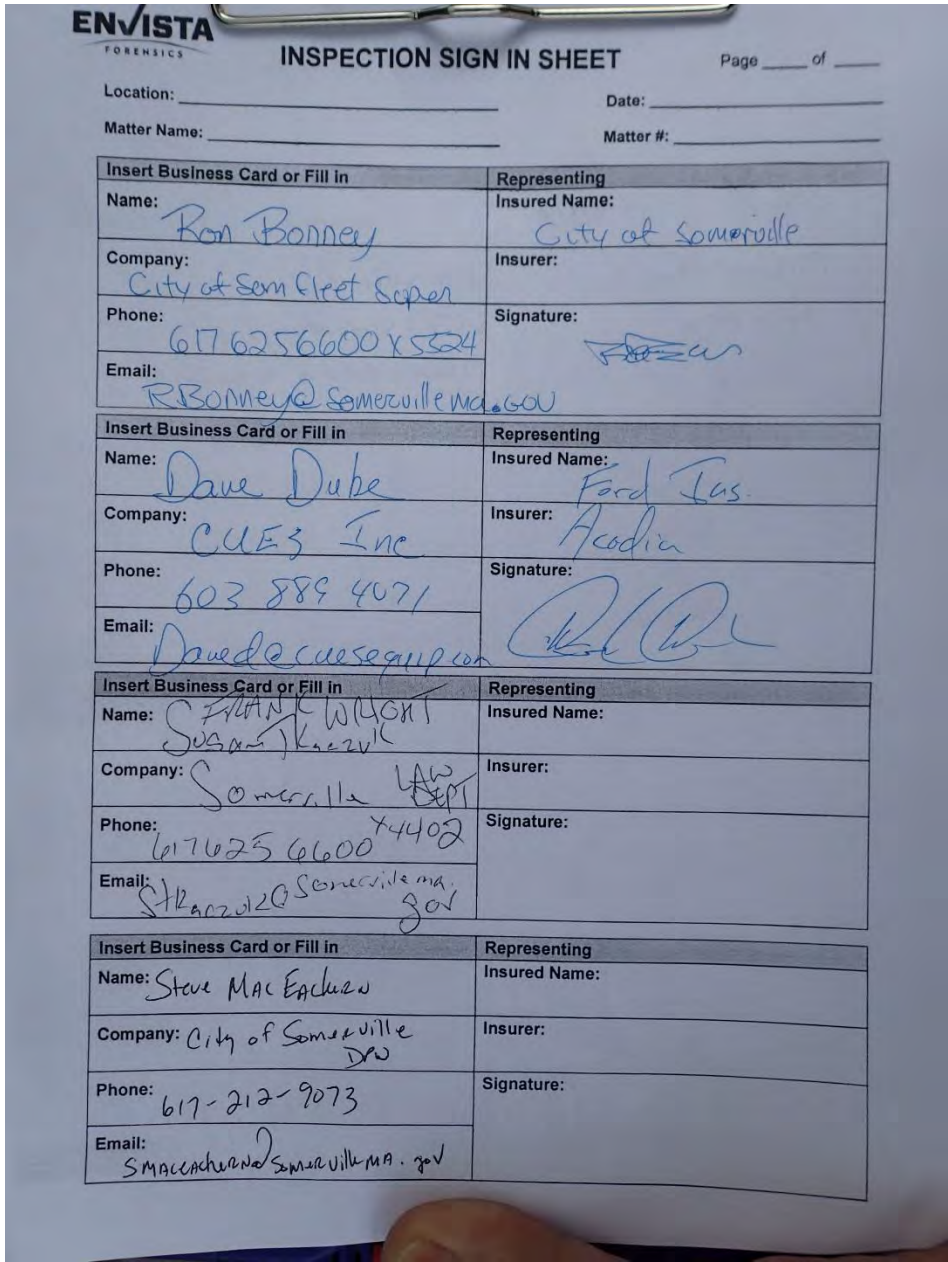 ENVISTA
FORENSICS
INSPECTION SIGN IN SHEET
Page ____ of ____
Location:
Date:
Matter Name:
Matter #:
Insert Business Card or Fill in
Representing
Name: Ron Bonney
Insured Name: City of Somerville
Company: City of Som Fleet Super
Insurer:
Phone: 617 6256600 x5524
Signature:
Email: RBonney@somervillema.GOV
Insert Business Card or Fill in
Representing
Name: Dave Dube
Insured Name: Ford Ins.
Company: CUES Inc
Insurer: Acadia
Phone: 603 889 4071
Signature:
Email: Daved@cuesequip.com
Insert Business Card or Fill in
Representing
Name: FRANK WRIGHT
Susan Tkaczuk
Insured Name:
Company: Somerville LAW DEPT
Insurer:
Phone: 617 625 6600 x4402
Signature:
Email: STkaczuk@somervillema.gov
Insert Business Card or Fill in
Representing
Name: Steve MacEachern
Insured Name:
Company: City of Somerville
DPW
Insurer:
Phone: 617-212-9073
Signature:
Email: SMACEACHERN@SOMERVILLEMA.gov